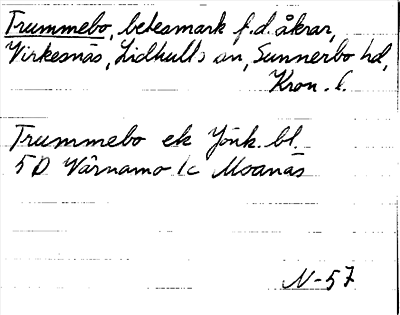 Trummebo, betesmark f.d. åkrar,
Virkesnäs, Lidhults sn, Sunnerbo hd,
Kron. l.
Trummebo ek Jönk. bl.
5D Värnamo 1c Moanäs
N-57